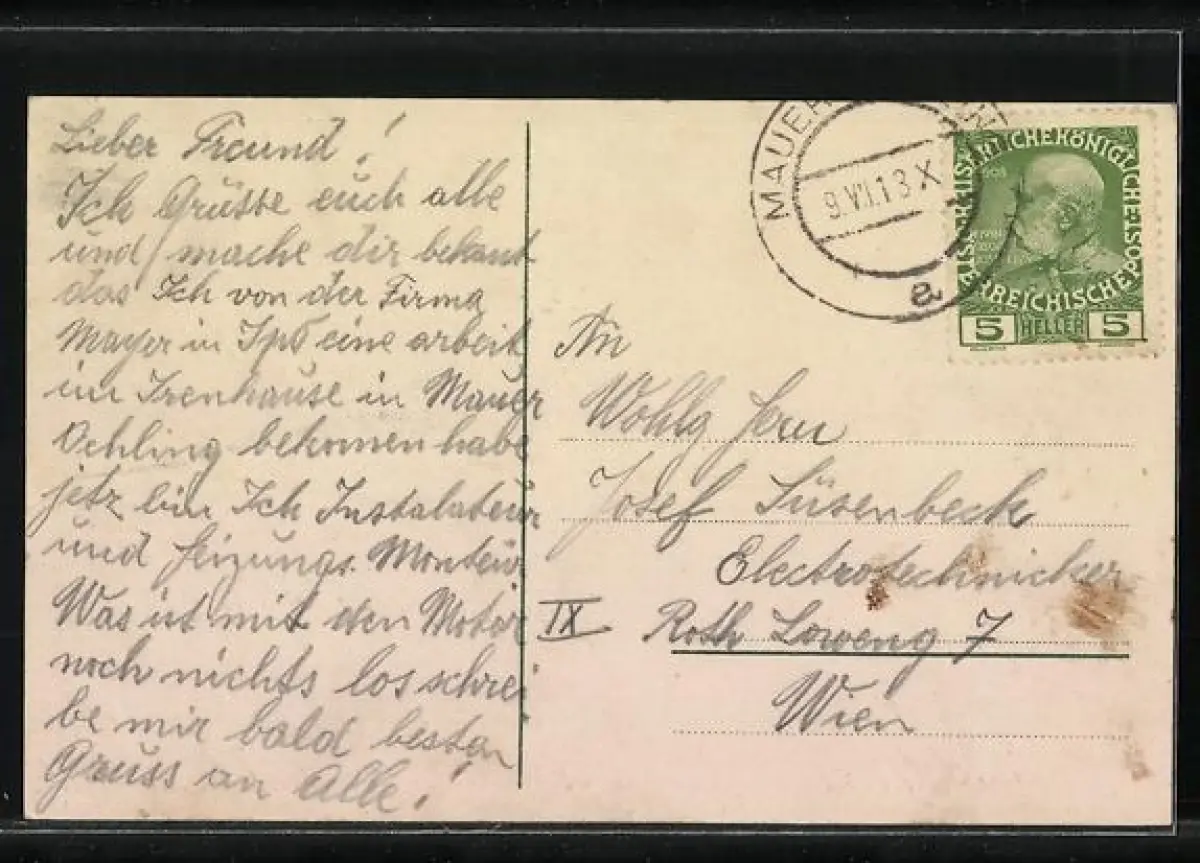 Lieber Freund!
Ich Grüsse euch alle
und mache dir bekant
das Ich von der Firma
Mayer in eine arbeit
im Irenhause in Mauer
Oehling bekomen habe
jetz bin Ich Instalateur
und Heizungs. Monteur
Was ist mit den Motor
noch nichts los schrei
be mir bald besten
Gruss an Alle!
MAUER
9.VII.13 X
a
KAISERLICHE KÖNIGLICHE
ÖSTERREICHISCHE POST
1908
5 HELLER 5
An
Wohlg Herrn
Josef Süsenbeck
Electrotechnicker
IX Roth Loweng 7
Wien